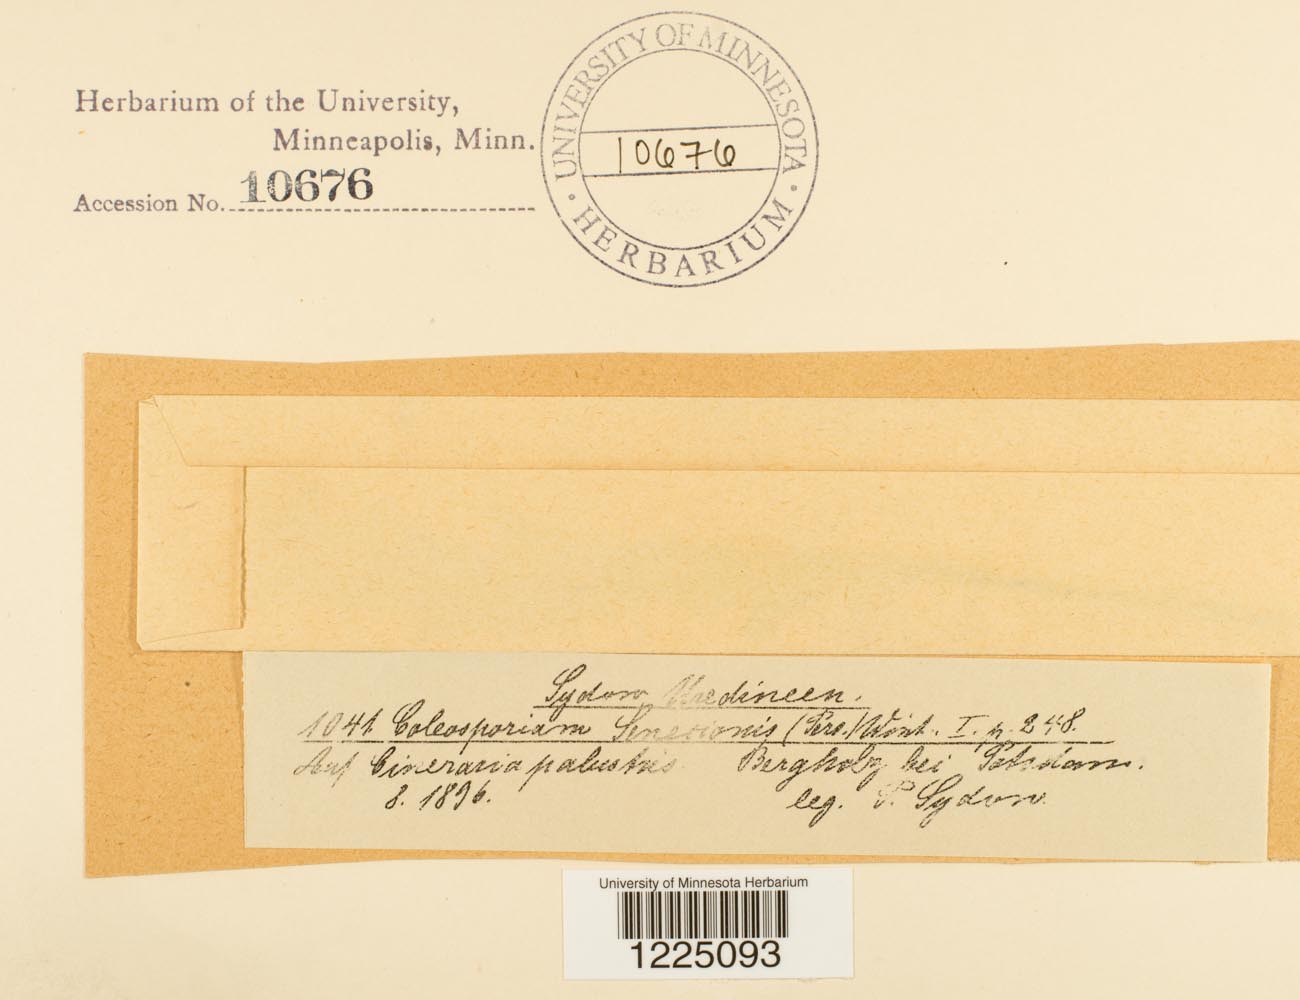 Herbarium of the University,
Minneapolis, Minn.
Accession No. 10676
UNIVERSITY OF MINNESOTA
10676
· HERBARIUM ·
Sydow Uredineen.
1041 Coleosporium Senecionis (Pers.) Wint. I. p. 248.
Auf Cineraria palustris Bergholz bei Potsdam.
8. 1896. leg. P. Sydow
University of Minnesota Herbarium
1225093